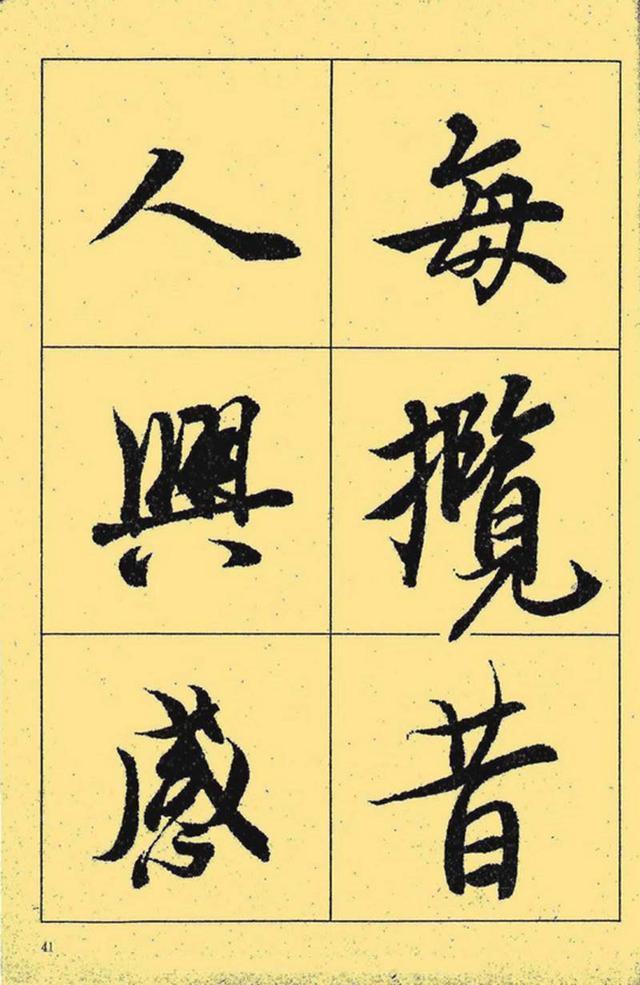 每攬昔
人興感
41